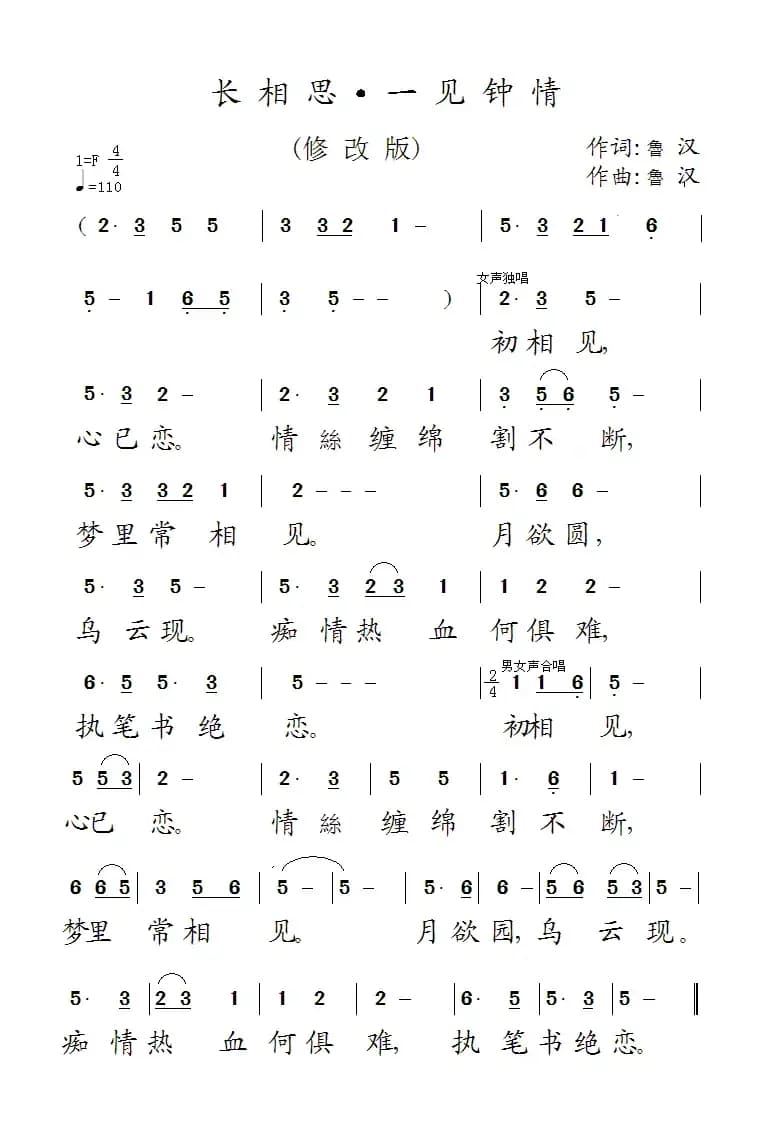 长相思·一见钟情
(修改版)
1=F 4/4
♩=110
作词:鲁汉
作曲:鲁汉
( 2· 3 5 5 | 3 3 2 1 - | 5· 3 2 1 6 |
女声独唱
5 - 1 6 5 | 3 5 - - ) | 2· 3 5 - |
初相见,
5· 3 2 - | 2· 3 2 1 | 3 5 6 5 - |
心已恋。 情絲缠绵 割不断,
5· 3 3 2 1 | 2 - - - | 5· 6 6 - |
梦里常相见。 月欲圆,
5· 3 5 - | 5· 3 2 3 1 | 1 2 2 - |
乌云现。 痴情热血何俱难,
男女声合唱
6· 5 5· 3 | 5 - - - | 2/4 1 1 6 | 5 - |
执笔书绝恋。 初相见,
5 5 3 | 2 - | 2· 3 | 5 5 | 1· 6 | 1 - |
心已恋。 情絲缠绵割不断,
6 6 5 | 3 5 6 | 5 - | 5 - | 5· 6 | 6 - | 5 6 5 3 | 5 - |
梦里常相见。 月欲园,乌云现。
5· 3 | 2 3 1 | 1 2 | 2 - | 6· 5 | 5· 3 | 5 - ‖
痴情热血何俱难,执笔书绝恋。